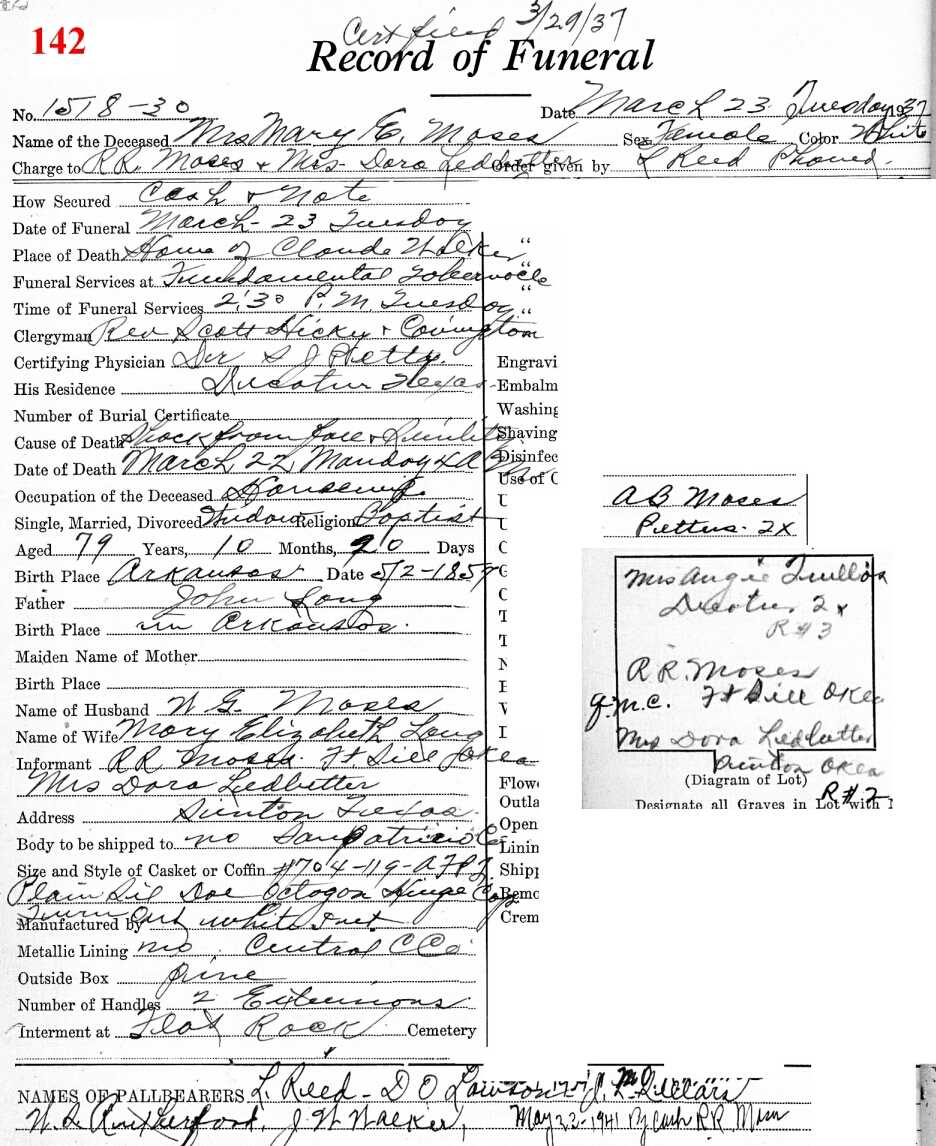 142
Certified 3/29/37
Record of Funeral
No. 1518-30 Date March 23 Tuesday 1937
Name of the Deceased Mrs Mary E. Moses Sex Female Color White
Charge to R.R. Moses & Mrs Dora Ledbetter Order given by L Reed Phoned.
How Secured Cash & Note
Date of Funeral March 23 Tuesday
Place of Death Home of Claude Walker "
Funeral Services at Fundamental Tabernacle "
Time of Funeral Services 2:30 P.M. Tuesday "
Clergyman Rev Scott Hicky & Covington
Certifying Physician Dr S J Petty.
Engravi
His Residence Decatur Texas
Embalm
Number of Burial Certificate
Washing
Cause of Death Shock from &
Shaving
Date of Death March 22 Monday 4 A
Disinfec
Use of C
Occupation of the Deceased Housewife
U
Single, Married, Divorced Widow Religion Baptist
U
Aged 79 Years, 10 Months, 20 Days
C
Birth Place Arkansas Date 5/2-1857
G
Father John Long
C
Birth Place in Arkansas.
T
Maiden Name of Mother
T
N
Birth Place
E
Name of Husband W G. Moses
V
Name of Wife Mary Elizabeth Long
I
Informant R R Moses. Ft Sill Okla
Mrs Dora Ledbetter
Flow
Address Sinton Texas
Outla
Open
Body to be shipped to no San Patricio Co
Linin
Size and Style of Casket or Coffin #704-119-A
Shipp
Plain Sil Doe Octagon Hinge Cap
Remo
Turn
Crem
Manufactured by White Int
Metallic Lining no. Central C Co
Outside Box pine
Number of Handles 2 Extensions
Interment at Flat Rock Cemetery
A B Moses
Petters. 2X
Mrs Angie
Decatur 2x
R#3
R.R. Moses
Q.M.C. Ft Sill Okla
Mrs Dora Ledbetter
Sinton Okla
(Diagram of Lot)
R#2
Designate all Graves in Lot with
NAMES OF PALLBEARERS L. Reed - D O Lawson J. L.
W. A Rutherford, J. W Walker, May 23-1941 By cash R R Moses